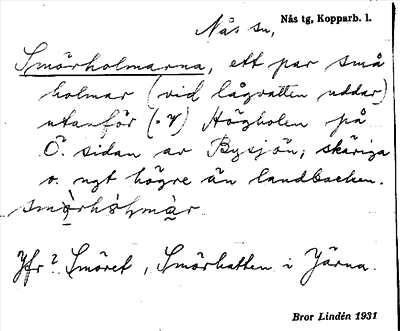 Nås sn,
Nås tg, Kopparb. l.
Smörholmarna, ett par små
holmar (vid lågvatten uddar)
utanför (. V) Högholen på
Ö. sidan av Bysjön; skäriga
o. ngt högre än landbacken.
Jfr? Smöret, Smörhatten i Järna.
Bror Lindén 1931